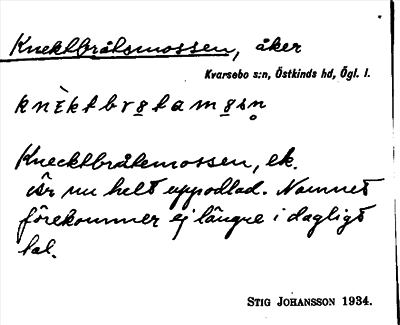 Knektbråtsmossen, åker
Kvarsebo s:n, Östkinds hd, Ögl. l.
Knecktbråtsmossen, ek.
är nu helt uppodlad. Namnet
förekommer ej längre i dagligt
tal.
STIG JOHANSSON 1934.